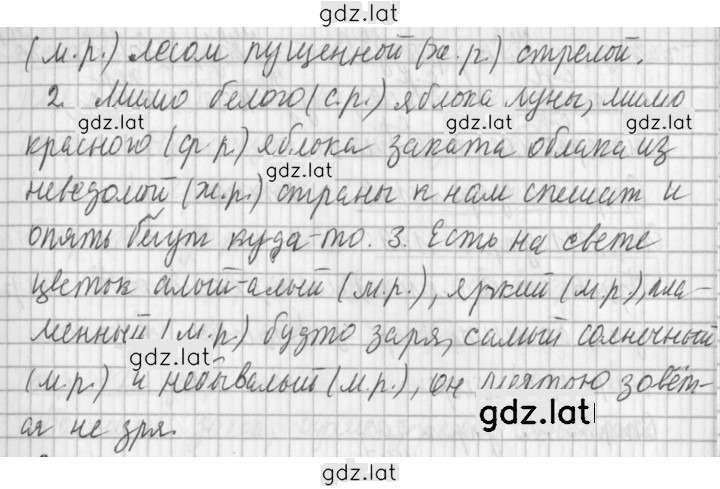 gdz.lat
(м.р.) лесом пущенной (ж.р.) стрелой.
2. Мимо белого (с.р.) яблока луны, мимо
gdz.lat
gdz.lat
красного (ср р.) яблока заката облака из
gdz.lat
неведомой (ж.р.) страны к нам спешат и
опять бегут куда-то. 3. Есть на свете
gdz.lat
gdz.lat
цветок алый-алый (м.р.), яркий (м.р.), пла-
менный (м.р.) будто заря, самый солнечный
gdz.lat
(м.р.) и небывалый (м.р.), он мечтою зовёт-
gdz.lat
ся не зря.
gdz.lat